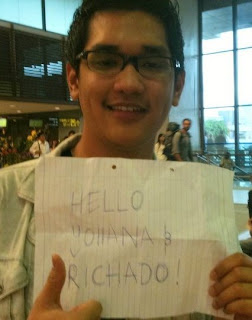 HELLO
YOHANA &
RICHADO!